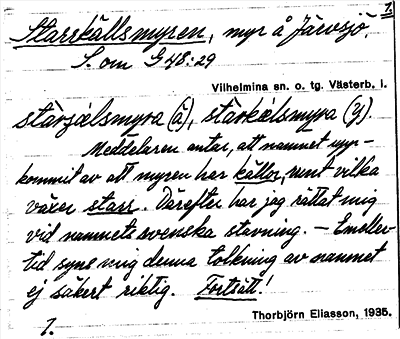 1.
Starrkällsmyren, myr å Järvsjö.
S. om G 48:29
Vilhelmina sn. o. tg. Västerb. l.
Meddelaren antar, att namnet upp-
kommit av att myren har källor, runt vilka
växer starr. Därefter har jag rättat mig
vid namnets svenska stavning. – Emeller-
tid syns mig denna tolkning av namnet
ej säkert riktig. Fortsätt!
Thorbjörn Eliasson, 1935.
1.